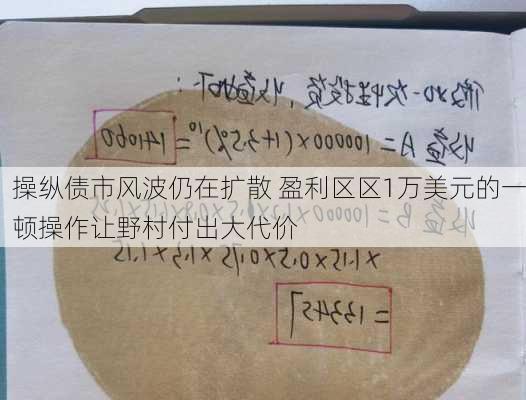 一次性投资，收益如下：
收益 A = 100000×(1+3.5%)¹⁰ = 141060
操纵债市风波仍在扩散 盈利区区1万美元的一
顿操作让野村付出大代价
收益 B = 100000
= 133457